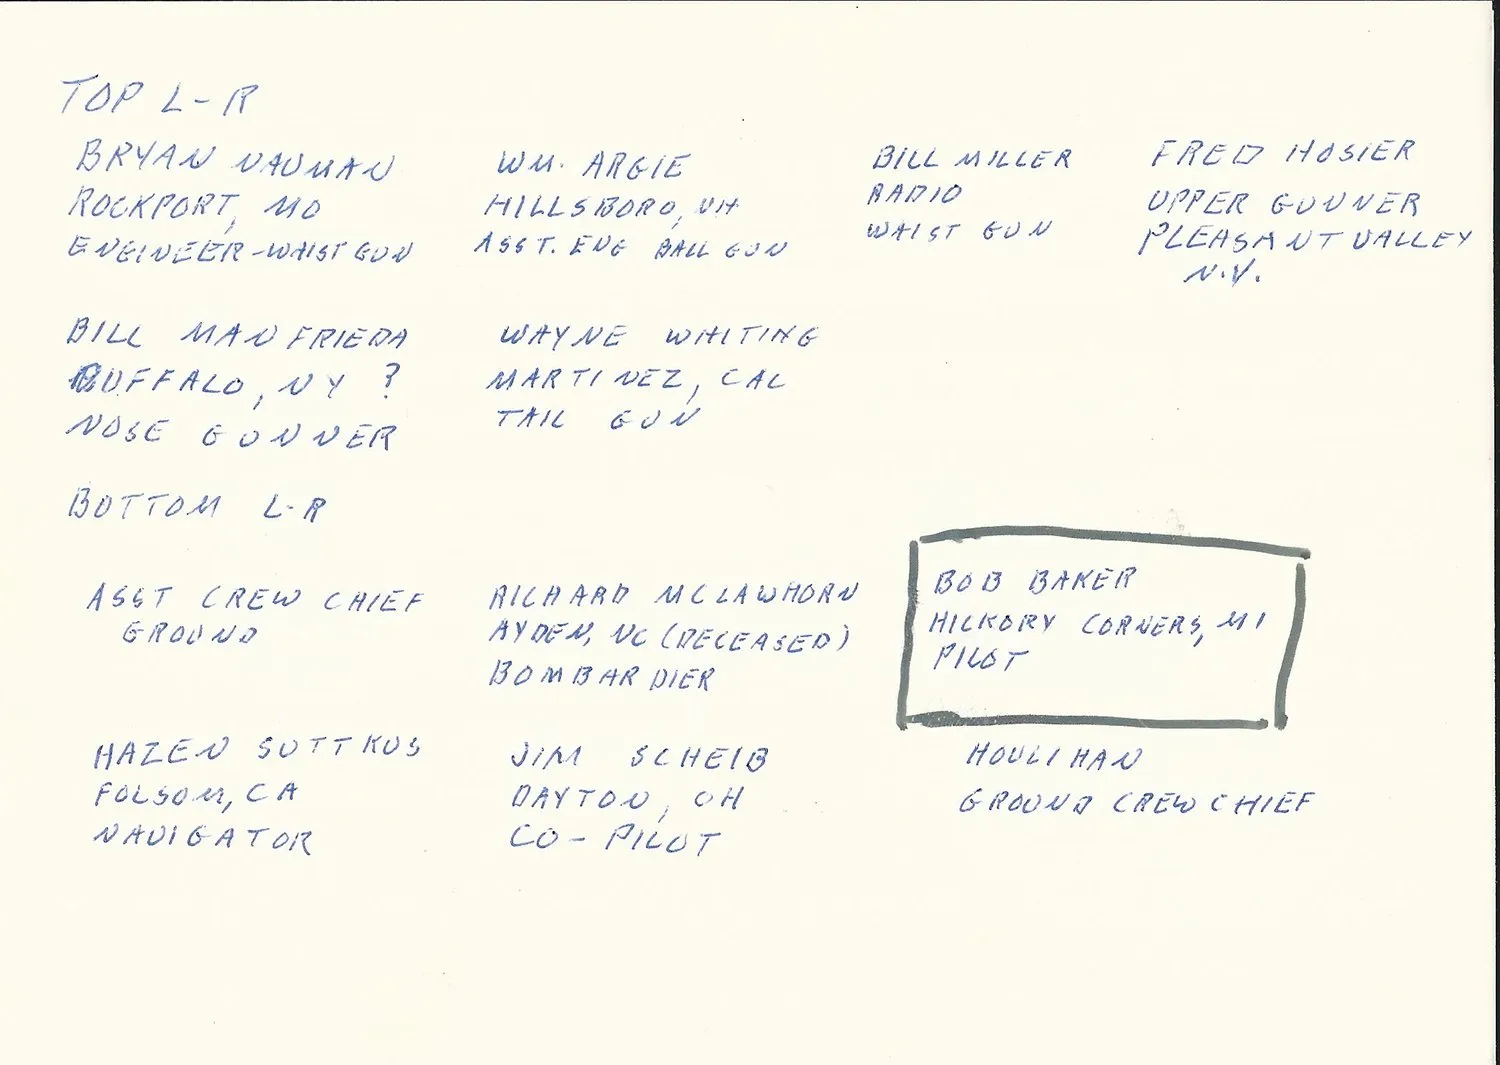 TOP L-R
BRYAN NAUMAN
ROCKPORT, MO
ENGINEER-WAIST GUN
WM. ARGIE
HILLSBORO, NH
ASST. ENG BALL GUN
BILL MILLER
RADIO
WAIST GUN
FRED HOSIER
UPPER GUNNER
PLEASANT VALLEY
N.Y.
BILL MANFRIEDA
BUFFALO, NY ?
NOSE GUNNER
WAYNE WHITING
MARTINEZ, CAL
TAIL GUN
BOTTOM L-R
ASST CREW CHIEF
GROUND
RICHARD MCLAWHORN
AYDEN, NC (DECEASED)
BOMBARDIER
BOB BAKER
HICKORY CORNERS, MI
PILOT
HAZEN SUTTKUS
FOLSOM, CA
NAVIGATOR
JIM SCHEIB
DAYTON, OH
CO-PILOT
HOULIHAN
GROUND CREW CHIEF